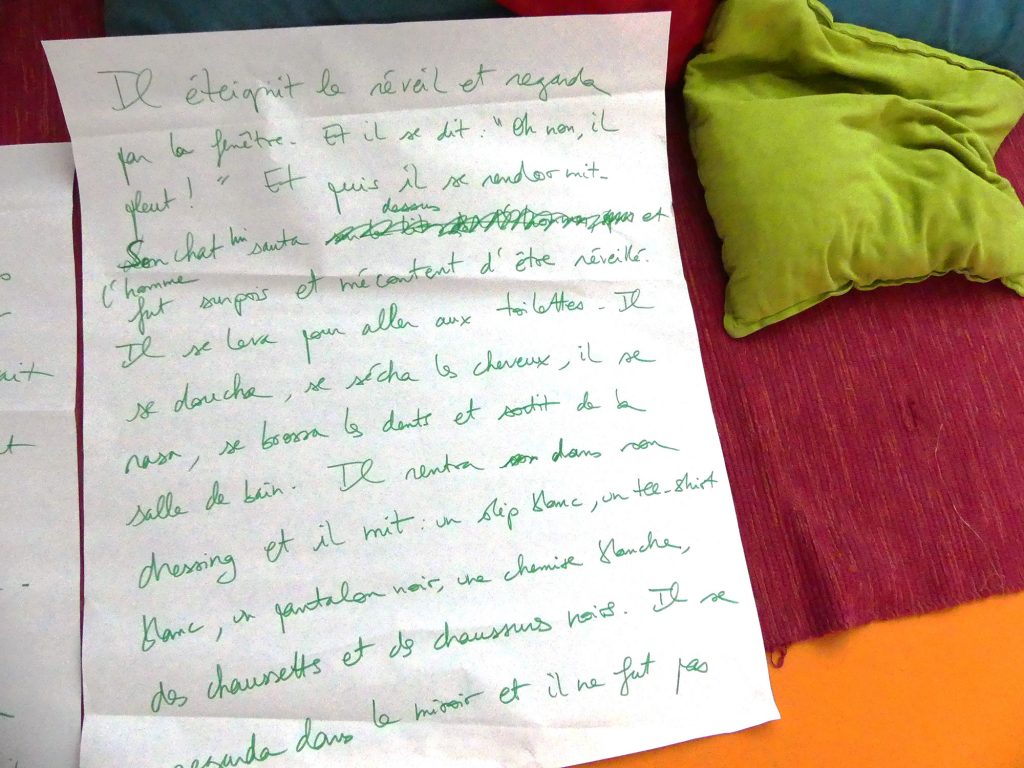 Il éteignit le réveil et regarda
par la fenêtre. Et il se dit : "Oh non, il
pleut ! " Et puis il se rendormit.
Son chat lui sauta dessus et
l'homme
fut surpris et mécontent d'être réveillé.
Il se leva pour aller aux toilettes. Il
se doucha, se sécha les cheveux, il se
rasa, se brossa les dents et sortit de la
salle de bain. Il rentra dans son
dressing et il mit : un slip blanc, un tee-shirt
blanc, un pantalon noir, une chemise blanche,
des chaussetts et des chaussures noirs. Il se
regarda dans le miroir et il ne fut pas
ait